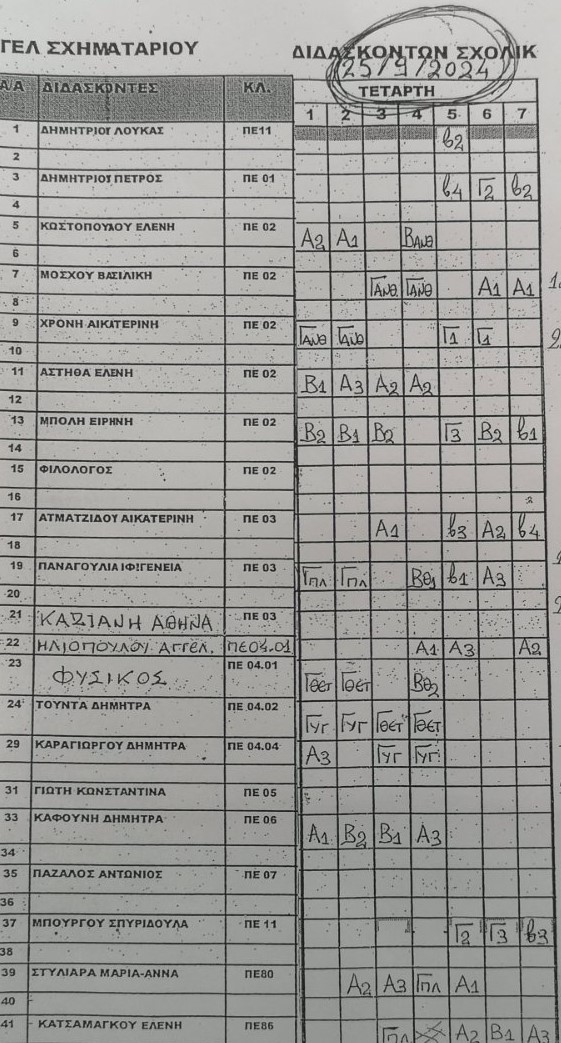 ΓΕΛ ΣΧΗΜΑΤΑΡΙΟΥ ΔΙΔΑΣΚΟΝΤΩΝ ΣΧΟΛΙΚ
25/9/2024
Α/Α ΔΙΔΑΣΚΟΝΤΕΣ ΚΛ. ΤΕΤΑΡΤΗ
1 2 3 4 5 6 7
1 ΔΗΜΗΤΡΙΟΥ ΛΟΥΚΑΣ ΠΕ11 β2
2
3 ΔΗΜΗΤΡΙΟΥ ΠΕΤΡΟΣ ΠΕ 01 β4 Γ2 β2
4
5 ΚΩΣΤΟΠΟΥΛΟΥ ΕΛΕΝΗ ΠΕ 02 Α2 Α1 ΒΑΝΘ
6
7 ΜΟΣΧΟΥ ΒΑΣΙΛΙΚΗ ΠΕ 02 ΓΑΝΘ ΓΑΝΘ Α1 Α1
8
9 ΧΡΟΝΗ ΑΙΚΑΤΕΡΙΝΗ ΠΕ 02 ΓΑΝΘ ΓΑΝΘ Γ1 Γ1
10
11 ΑΣΤΗΘΑ ΕΛΕΝΗ ΠΕ 02 Β1 Α3 Α2 Α2
12
13 ΜΠΟΛΗ ΕΙΡΗΝΗ ΠΕ 02 Β2 Β1 Β2 Γ3 Β2 β1
14
15 ΦΙΛΟΛΟΓΟΣ ΠΕ 02
16
17 ΑΤΜΑΤΖΙΔΟΥ ΑΙΚΑΤΕΡΙΝΗ ΠΕ 03 Α1 β3 Α2 β4
18
19 ΠΑΝΑΓΟΥΛΙΑ ΙΦΙΓΕΝΕΙΑ ΠΕ 03 ΓΠΛ ΓΠΛ Βθ1 β1 Α3
20
21 ΚΑΣΙΑΝΗ ΑΘΗΝΑ ΠΕ 03
22 ΗΛΙΟΠΟΥΛΟΥ ΑΓΓΕΛ. ΠΕ04.01 Α1 Α3 Α2
23 ΦΥΣΙΚΟΣ ΠΕ 04.01 ΓΘΕΤ ΓΘΕΤ Βθ2
24 ΤΟΥΝΤΑ ΔΗΜΗΤΡΑ ΠΕ 04.02 ΓΥΓ ΓΥΓ ΓΘΕΤ ΓΘΕΤ
29 ΚΑΡΑΓΙΩΡΓΟΥ ΔΗΜΗΤΡΑ ΠΕ 04.04 Α3 ΓΥΓ ΓΥΓ
31 ΓΙΩΤΗ ΚΩΝΣΤΑΝΤΙΝΑ ΠΕ 05
33 ΚΑΦΟΥΝΗ ΔΗΜΗΤΡΑ ΠΕ 06 Α1 Β2 Β1 Α3
34
35 ΠΑΖΑΛΟΣ ΑΝΤΩΝΙΟΣ ΠΕ 07
36
37 ΜΠΟΥΡΓΟΥ ΣΠΥΡΙΔΟΥΛΑ ΠΕ 11 Γ2 Γ3 β3
38
39 ΣΤΥΛΙΑΡΑ ΜΑΡΙΑ-ΑΝΝΑ ΠΕ80 Α2 Α3 ΓΠΛ Α1
40
41 ΚΑΤΣΑΜΑΓΚΟΥ ΕΛΕΝΗ ΠΕ86 ΓΠΛ Α2 Β1 Α3